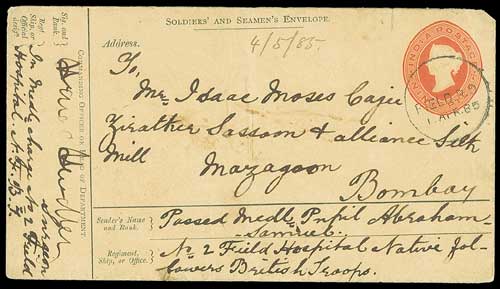 Soldiers' and Seamen's Envelope.
4/5/85.
Address.
To,
Mr. Isaac Moses Cajee
Zirather Sassoon & alliance Silk
Mill
Mazagoon
Bombay
INDIA POSTAGE
1 APR. 85
Sender's Name and Rank.
Passed Medl. Pupil Abraham
Samuel.
Regiment, Ship, or Office.
No. 2 Field Hospital Native fol-
lowers British Troops.
Sig. and Rank
Surgeon
Commanding Officer or Head of Department
Regt. Ship, or Office
In Medl. charge No 2 Field
Hospital, N. F. B. T.